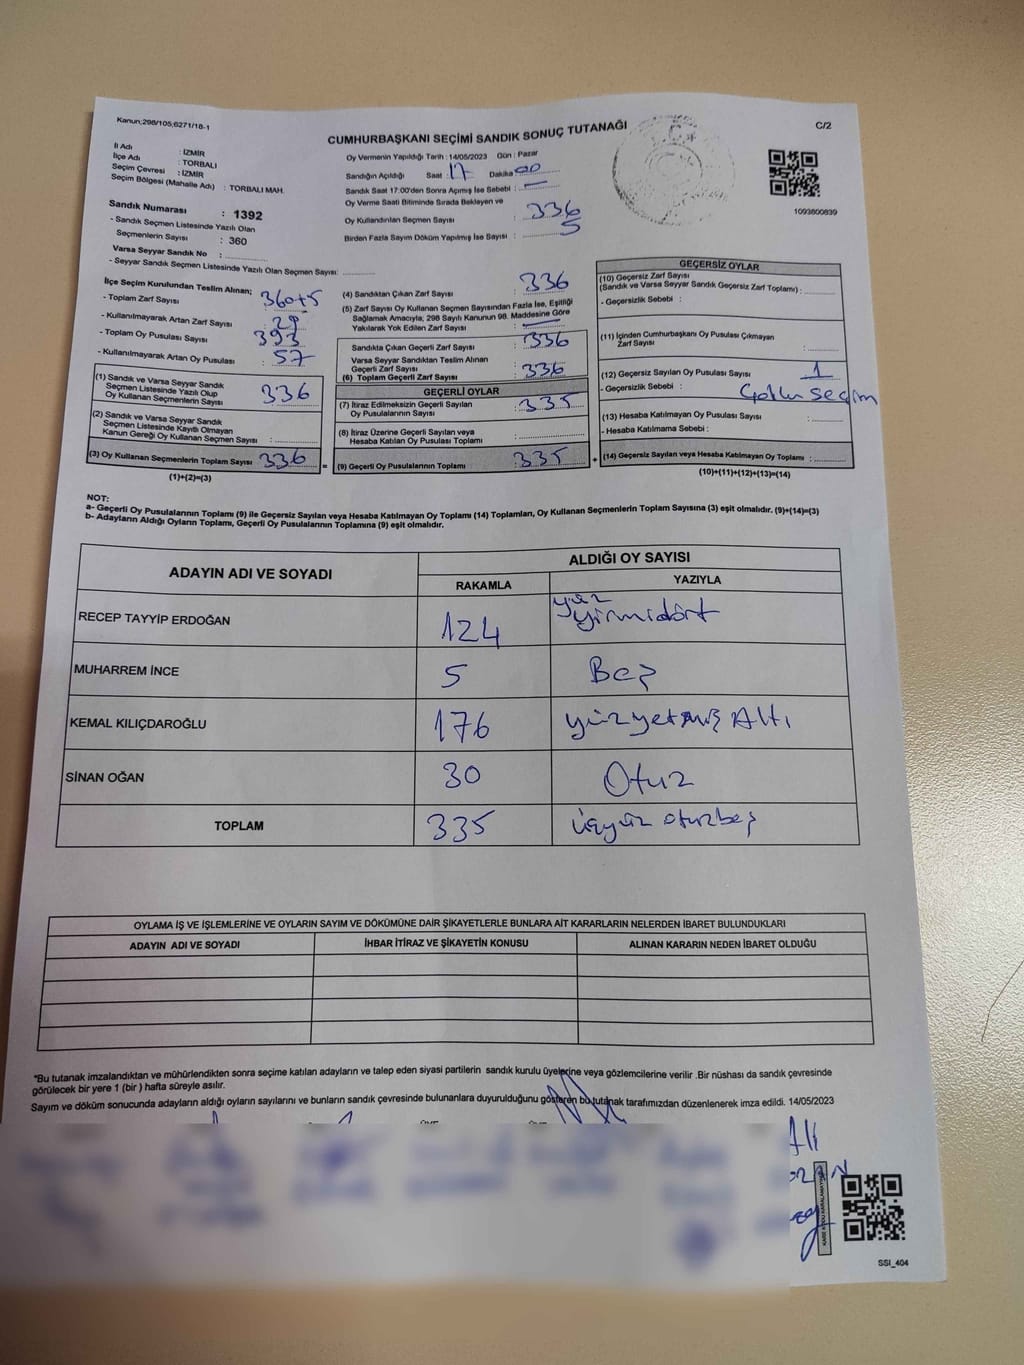 Kanun;298/105;6271/18-1
CUMHURBAŞKANI SEÇİMİ SANDIK SONUÇ TUTANAĞI
C/2
İl Adı : İZMİR
İlçe Adı : TORBALI
Seçim Çevresi : İZMİR
Seçim Bölgesi (Mahalle Adı) : TORBALI MAH.
Sandık Numarası : 1392
- Sandık Seçmen Listesinde Yazılı Olan
Seçmenlerin Sayısı : 360
Varsa Seyyar Sandık No :
- Seyyar Sandık Seçmen Listesinde Yazılı Olan Seçmen Sayısı:
Oy Vermenin Yapıldığı Tarih : 14/05/2023 Gün : Pazar
Sandığın Açıldığı Saat : 17 Dakika 00
Sandık Saat 17:00'den Sonra Açımış İse Sebebi :
Oy Verme Saati Bitiminde Sırada Bekleyen ve
Oy Kullandırılan Seçmen Sayısı : 336
Birden Fazla Sayım Döküm Yapılmış İse Sayısı : 5
1093800839
İlçe Seçim Kurulundan Teslim Alınan;
- Toplam Zarf Sayısı : 360+5
- Kullanılmayarak Artan Zarf Sayısı : 29
- Toplam Oy Pusulası Sayısı : 393
- Kullanılmayarak Artan Oy Pusulası : 57
(1) Sandık ve Varsa Seyyar Sandık
Seçmen Listesinde Yazılı Olup
Oy Kullanan Seçmenlerin Sayısı : 336
(2) Sandık ve Varsa Seyyar Sandık
Seçmen Listesinde Kayıtlı Olmayan
Kanun Gereği Oy Kullanan Seçmen Sayısı :
(3) Oy Kullanan Seçmenlerin Toplam Sayısı 336
(1)+(2)=(3)
(4) Sandıktan Çıkan Zarf Sayısı : 336
(5) Zarf Sayısı Oy Kullanan Seçmen Sayısından Fazla İse, Eşitliği
Sağlamak Amacıyla, 298 Sayılı Kanunun 98. Maddesine Göre
Yakılarak Yok Edilen Zarf Sayısı :
Sandıkta Çıkan Geçerli Zarf Sayısı : 336
Varsa Seyyar Sandıktan Teslim Alınan
Geçerli Zarf Sayısı :
(6) Toplam Geçerli Zarf Sayısı : 336
GEÇERLİ OYLAR
(7) İtiraz Edilmeksizin Geçerli Sayılan
Oy Pusulalarının Sayısı : 335
(8) İtiraz Üzerine Geçerli Sayılan veya
Hesaba Katılan Oy Pusulası Toplamı :
= (9) Geçerli Oy Pusulalarının Toplamı : 335 +
GEÇERSİZ OYLAR
(10) Geçersiz Zarf Sayısı
(Sandık ve Varsa Seyyar Sandık Geçersiz Zarf Toplamı) :
- Geçersizlik Sebebi :
(11) İçinden Cumhurbaşkanı Oy Pusulası Çıkmayan
Zarf Sayısı :
(12) Geçersiz Sayılan Oy Pusulası Sayısı : 1
- Geçersizlik Sebebi : Çoklu Seçim
(13) Hesaba Katılmayan Oy Pusulası Sayısı :
- Hesaba Katılmama Sebebi :
(14) Geçersiz Sayılan veya Hesaba Katılmayan Oy Toplamı :
(10)+(11)+(12)+(13)=(14)
NOT:
a- Geçerli Oy Pusulalarının Toplamı (9) ile Geçersiz Sayılan veya Hesaba Katılmayan Oy Toplamı (14) Toplamları, Oy Kullanan Seçmenlerin Toplam Sayısına (3) eşit olmalıdır. (9)+(14)=(3)
b- Adayların Aldığı Oyların Toplamı, Geçerli Oy Pusulalarının Toplamına (9) eşit olmalıdır.
ADAYIN ADI VE SOYADI ALDIĞI OY SAYISI
RAKAMLA YAZIYLA
RECEP TAYYİP ERDOĞAN 124 yüz yirmidört
MUHARREM İNCE 5 Beş
KEMAL KILIÇDAROĞLU 176 yüzyetmiş Altı
SİNAN OĞAN 30 Otuz
TOPLAM 335 üçyüz otuzbeş
OYLAMA İŞ VE İŞLEMLERİNE VE OYLARIN SAYIM VE DÖKÜMÜNE DAİR ŞİKAYETLERLE BUNLARA AİT KARARLARIN NELERDEN İBARET BULUNDUKLARI
ADAYIN ADI VE SOYADI İHBAR İTİRAZ VE ŞİKAYETİN KONUSU ALINAN KARARIN NEDEN İBARET OLDUĞU
*Bu tutanak imzalandıktan ve mühürlendikten sonra seçime katılan adayların ve talep eden siyasi partilerin sandık kurulu üyelerine veya gözlemcilerine verilir .Bir nüshası da sandık çevresinde
görülecek bir yere 1 (bir ) hafta süreyle asılır.
Sayım ve döküm sonucunda adayların aldığı oyların sayılarını ve bunların sandık çevresinde bulunanlara duyurulduğunu gösteren bu tutanak tarafımızdan düzenlenerek imza edildi. 14/05/2023
Ali
SSI_404